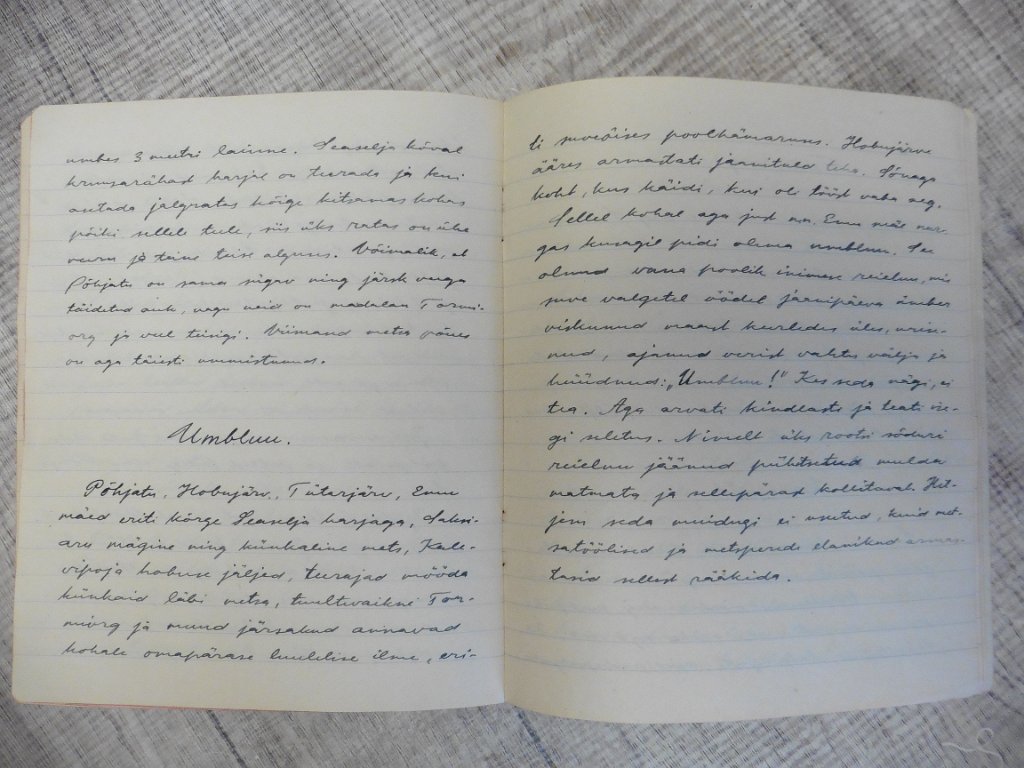 umbes 3 meetri laiune. Seaselja kõval
kruusarähast harjal on teerada ja kui
asetada jalgratas kõige kitsamas kohas
põiki sellele teele, siis üks ratas on ühe
veeru ja teine teise alguses. Võimalik, et
Põhjatu on sama sügav ning järsk veega
täidetud auk, nagu neid on madalam Tormi-
org ja veel teisigi. Viimased metsa põues
on aga täiesti ummistunud.
Umbluu.
Põhjatu, Hobujärv, Tütarjärv, Emu
mäed eriti kõrge Seaselja harjaga, Saksi-
aru mägine ning künkaline mets, Kale-
vipoja hobuse jäljed, teerajad mööda
künkaid läbi metsa, tuultvaikne Tor-
miorg ja muud järsakud annavad
kohale omapärase luulelise ilme, eri-
ti suveöises poolhämaruses. Hobujärve
ääres armastati jaanituld teha. Sõnaga
koht, kus käidi, kui oli tööst vaba aeg.
Sellel kohal aga just Emu mäe nur-
gas kusagil pidi olema umbluu. See
olnud vana poolik inimese reieluu, mis
suve valgetel öödel jaanipäeva ümber
viskunud maast keereldes üles, urise-
nud, ajanud verist vahtu välja ja
hüüdnud: „Umbluu!" Kes seda nägi, ei
tea. Aga arvati kindlasti ja teati isegi
seletus. Nimelt üks rootsi sõduri
reieluu jäänud pühitsetud mulda
matmata ja sellepärast kollitavat. Hil-
jem seda muidugi ei usutud, kuid met-
satöölised ja metsperede elanikud armas-
tasid sellest rääkida.